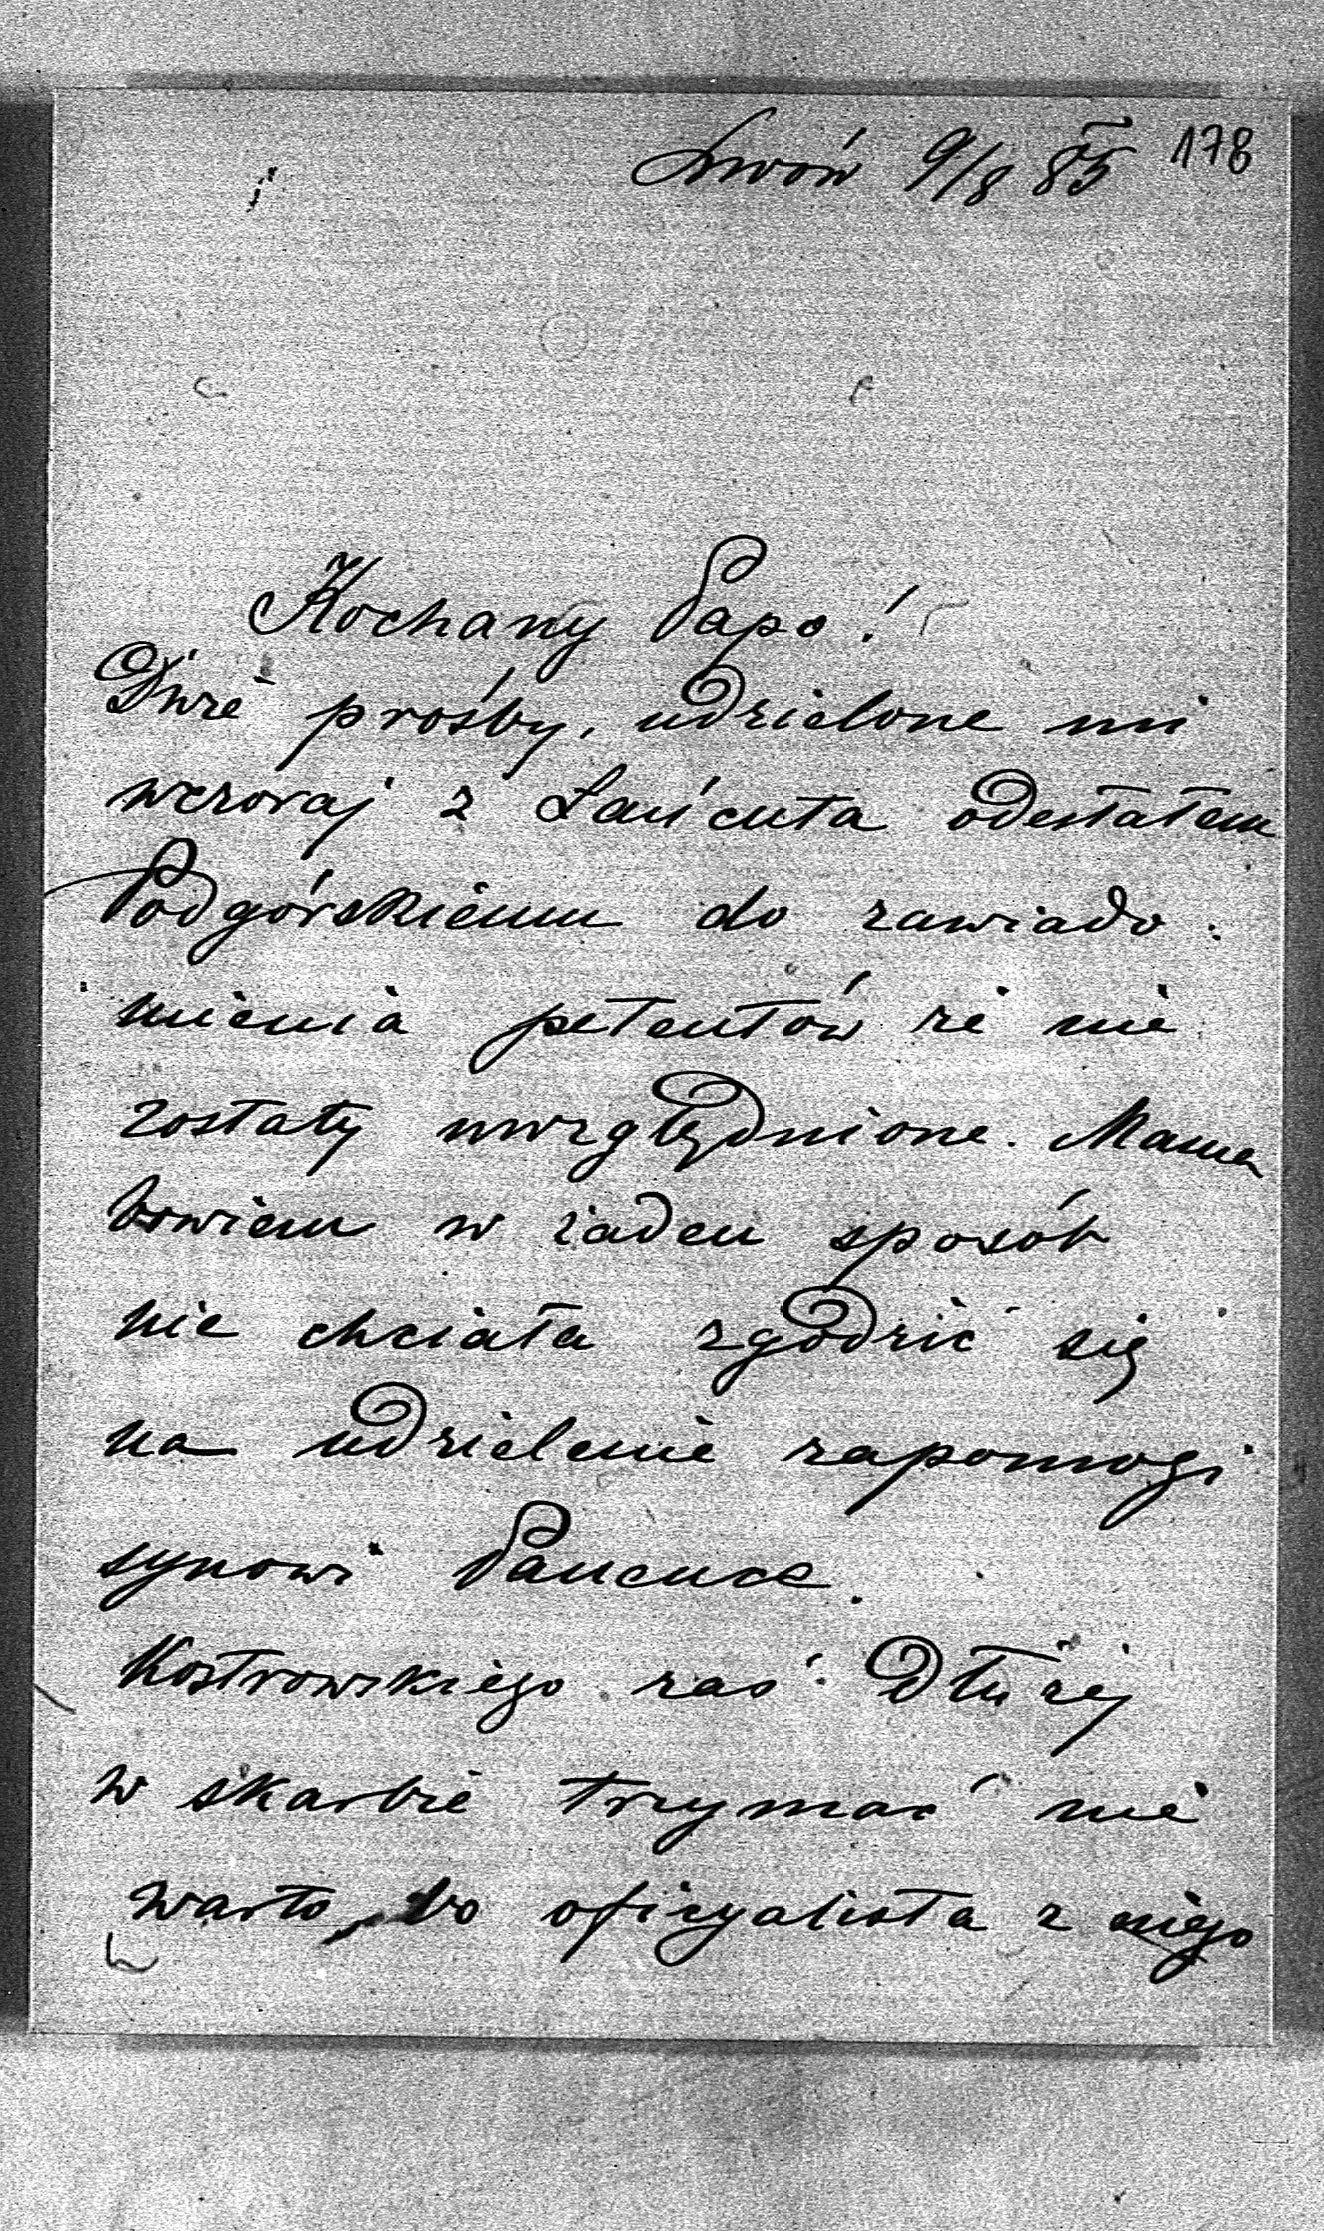 Lwów 9/8 85 178
Kochany Papo!
Dwie prośby, udzielone mi
wczoraj z Łańcuta odesłałem
Podgórskiemu do zawiado-
mienia petentów że nie
zostały uwzględnione. Mama
bowiem w żaden sposób
nie chciała zgodzić się
na udzielenie zapomogi
synowi
Kostrowskiego zaś dłużej
w skarbie trzymać nie
warto, bo oficyalista z niego